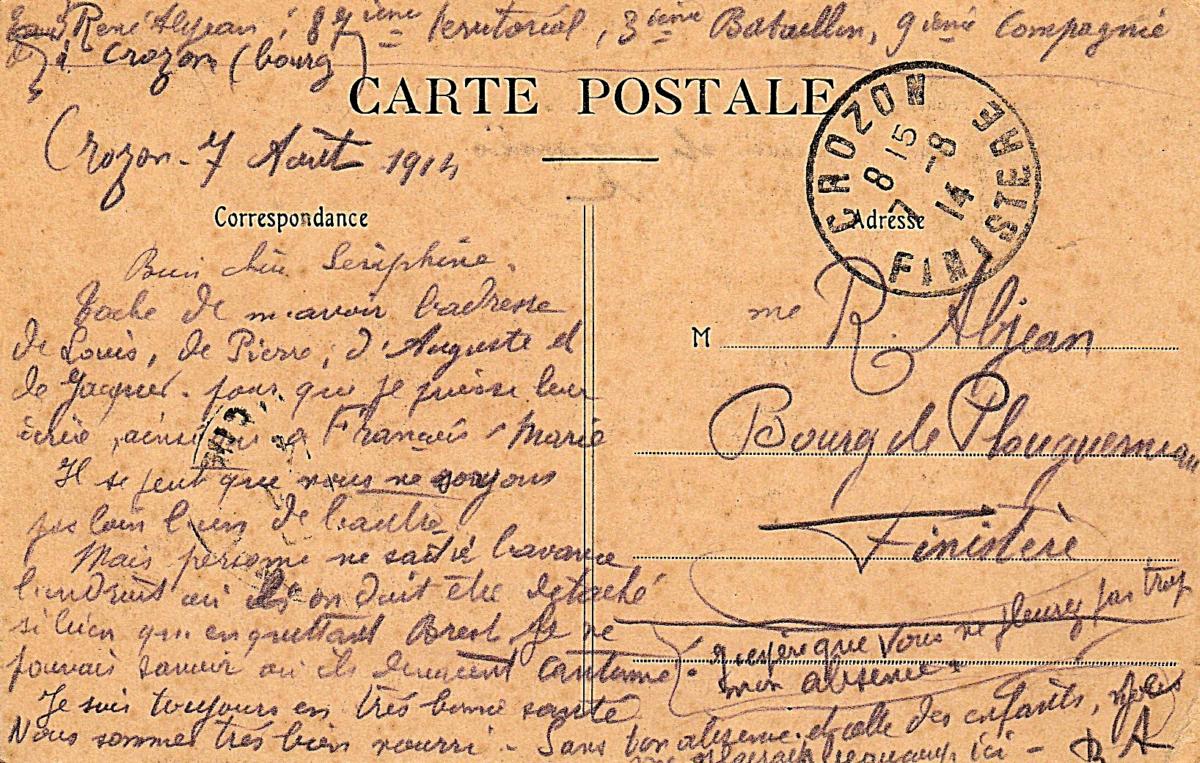 René Abjean, 87ième territorial, 3ième Bataillon, 9ième Compagnie
à Crozon (bourg)
CARTE POSTALE
Crozon - 7 Août 1914
CROZON
8 15
7 - 8
14
FINISTERE
Correspondance
Adresse
Bien chère Séraphine,
Tache de m'avoir l'adresse
de Louis, de Pierre, d'Auguste et
de Jacques pour que je puisse leur
écrire, ainsi François Marie
Il se peut que nous ne soyons
pas loin l'un de l'autre
Mais personne ne sait à l'avance
l'endroit où on doit être détaché
si bien qu'en quittant Brest je ne
pouvais savoir où ils
Je suis toujours en très bonne santé
Nous sommes très bien nourri - Sans ton absence et celle des enfants,
beaucoup ici -
R A
M me R. Abjean
Bourg de Plouguerneau
Finistère
J'espère que vous ne pleurez pas trop
mon absence.